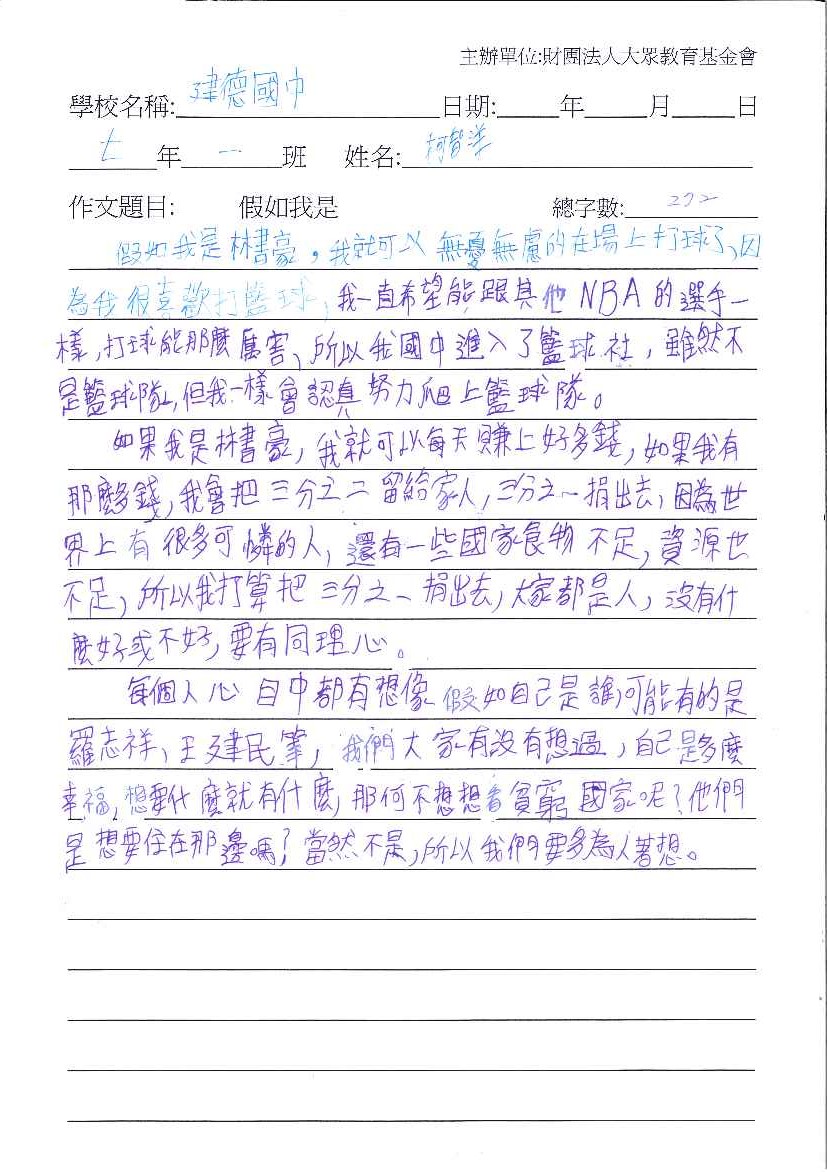 主辦單位:財團法人大眾教育基金會
學校名稱:建德國中 日期: 年 月 日
七 年 一 班 姓名:柯智
作文題目: 假如我是 總字數: 292
假如我是林書豪，我就可以無憂無慮的在場上打球了、因
為我很喜歡打籃球，我一直希望能跟其他NBA的選手一
樣，打球能那麼厲害、所以我國中進入了籃球社，雖然不
是籃球隊，但我一樣會認真努力爬上籃球隊。
如果我是林書豪，我就可以每天賺上好多錢，如果我有
那麼多錢，我會把三分之二留給家人，三分之一捐出去，因為世
界上有很多可憐的人，還有一些國家食物不足，資源也
不足，所以我打算把三分之一捐出去，大家都是人，沒有什
麼好或不好，要有同理心。
每個人心目中都有想像假如自己是誰，可能有的是
羅志祥，王建民等，我們大家有沒有想過，自己是多麼
幸福，想要什麼就有什麼，那何不想想看貧窮國家呢？他們
是想要住在那邊嗎？當然不是，所以我們要多為人著想。